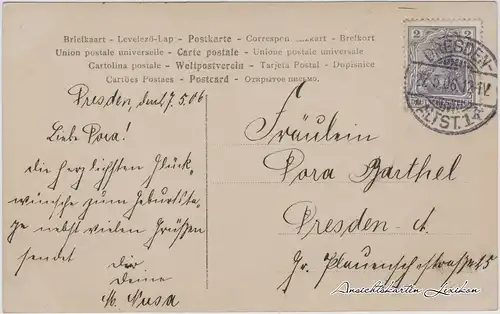 Briefkaart - Levelező-Lap - Postkarte - Correspon kaart - Brefkort
Union postale universelle - Carte postale - Unione postale universale
Cartolina postale - Weltpostverein - Tarjeta Postal - Dopisnice
Cartões Postaes - Postcard - Открытое письмо.
2
DRESDEN-
7.5.06. 12-1V.
ALTST. 14
Dresden, den 7.5.06
Liebe Dora!
die herzlichsten Glück-
wünsche zum Geburtsta-
ge nebst vielen Grüßen
sendet Dir
Deine
M.
Fräulein
Dora Barthel
Dresden - A.
Gr. Plauenschestraße 15
Ansichtskarten Lexikon